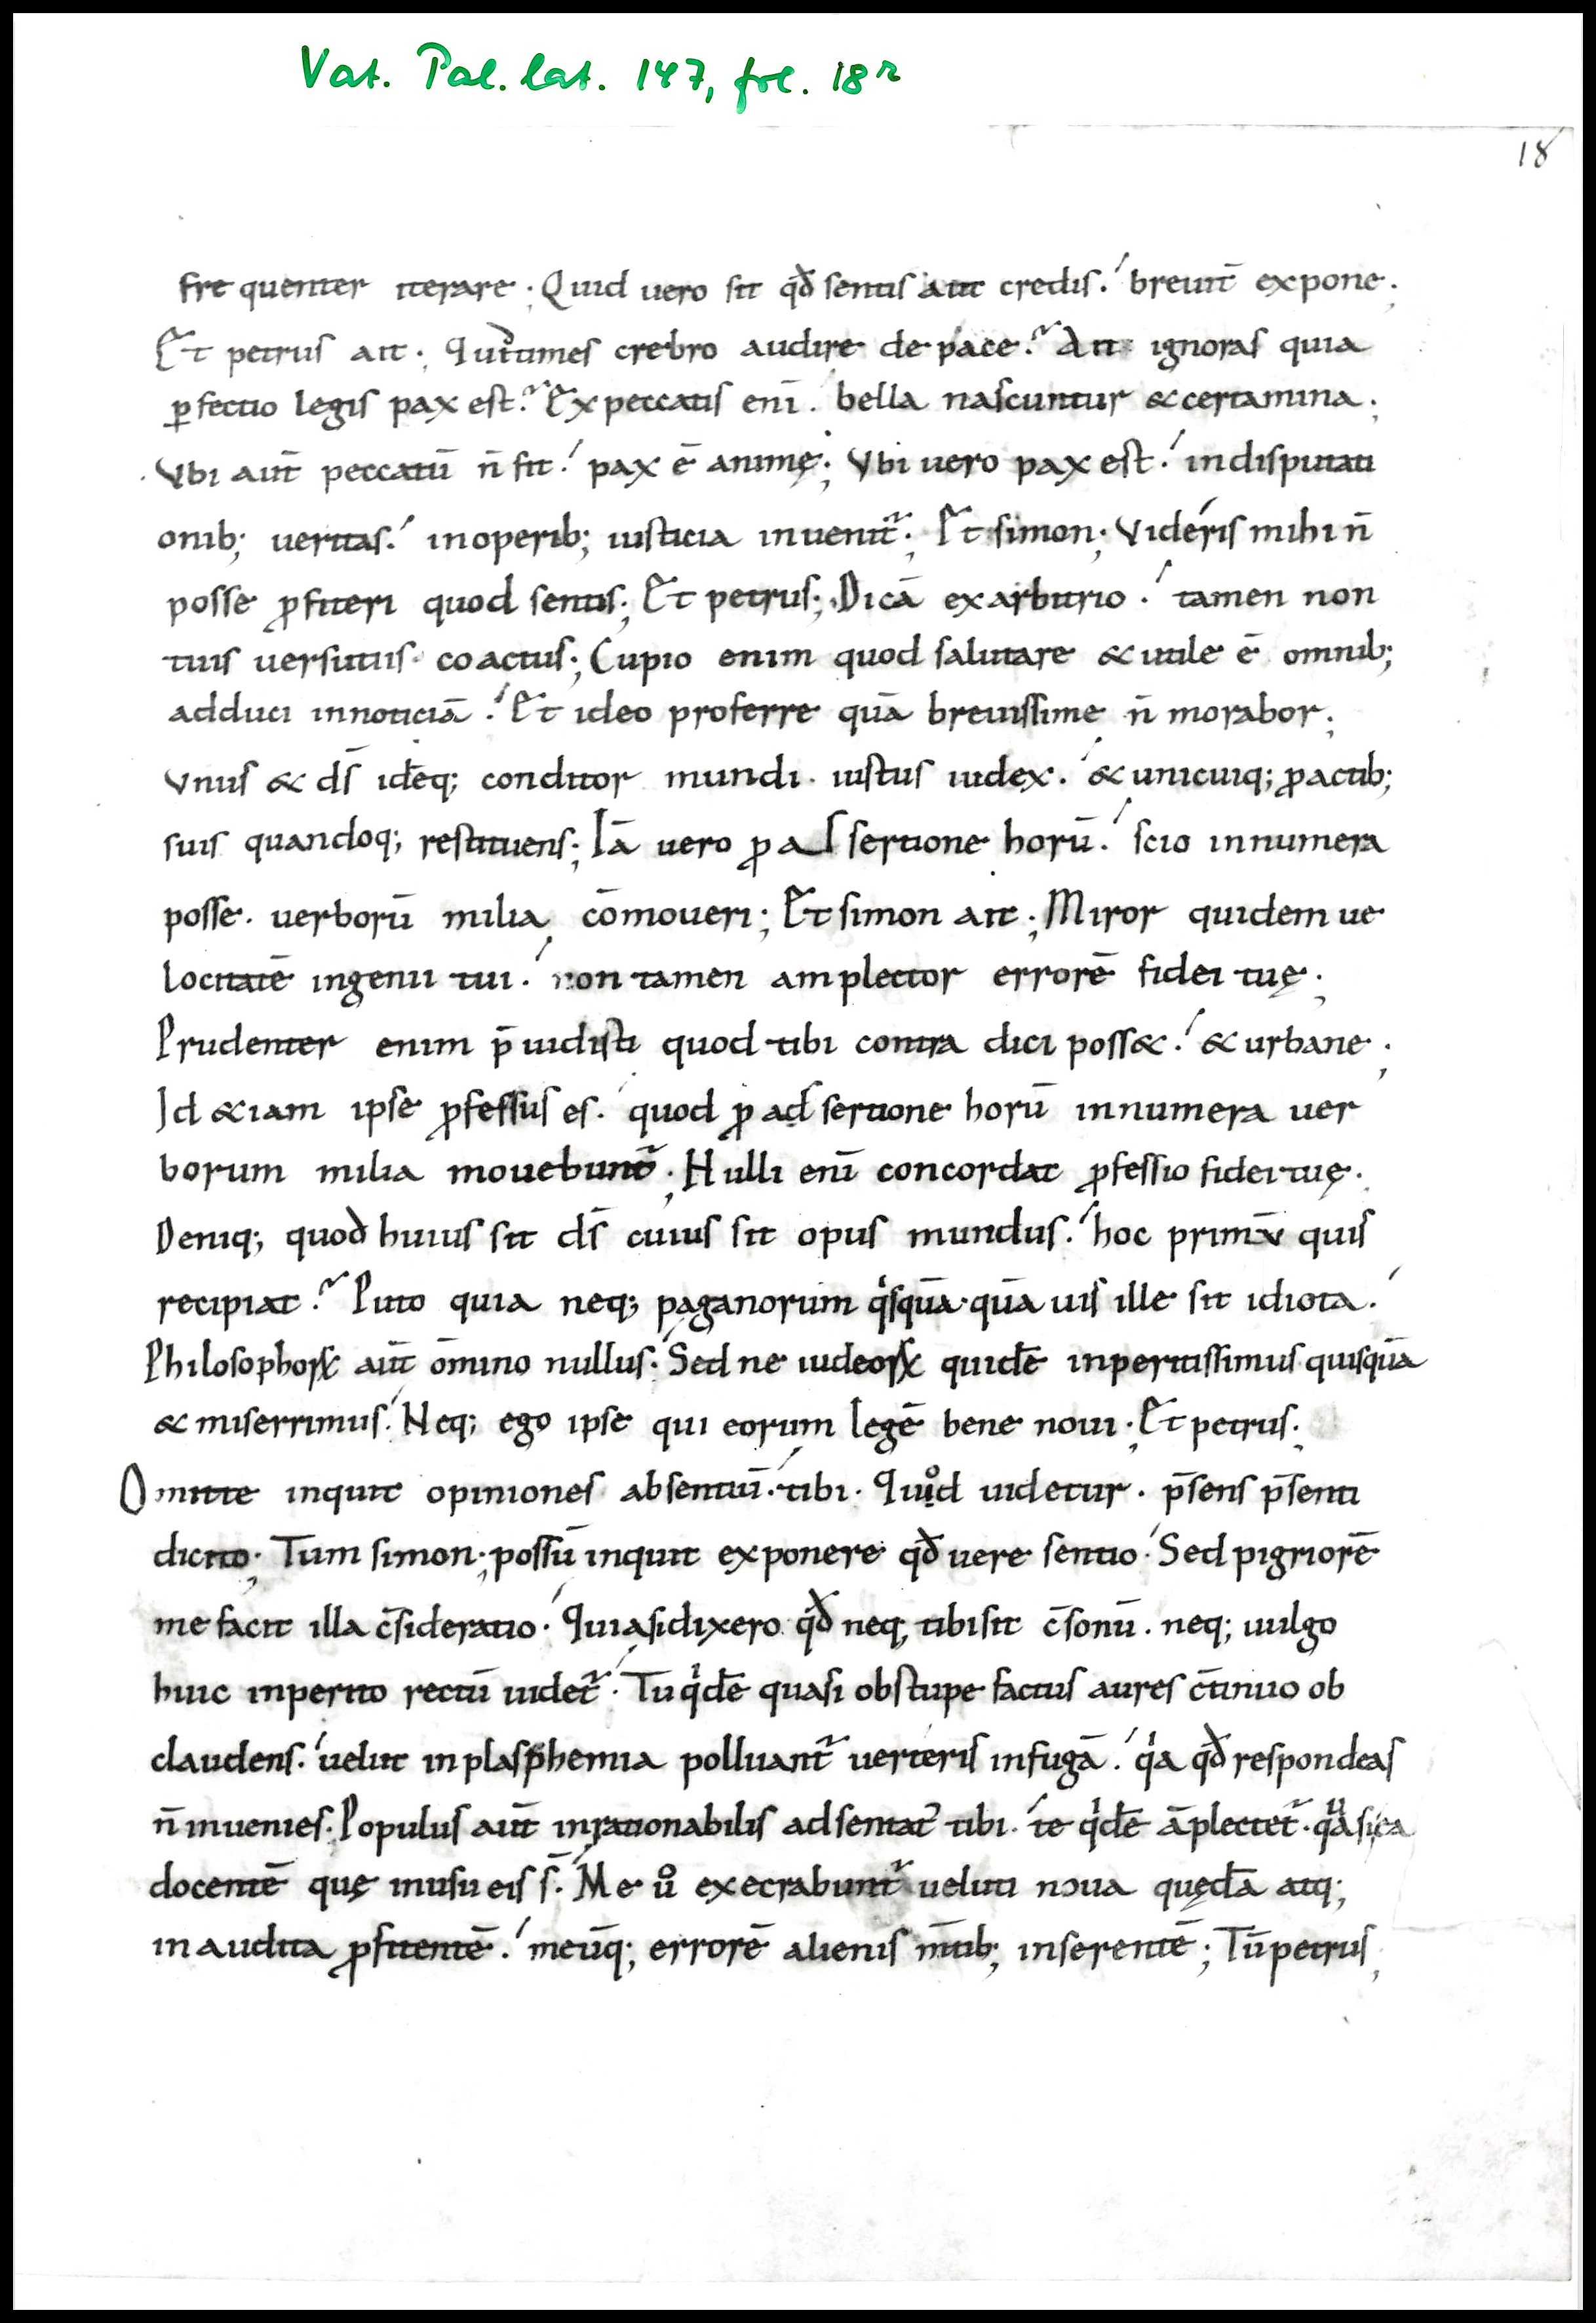 Vat. Pal. lat. 147, fol. 18r
18
frequenter iterare; Quid uero sit qđ sentis aut credis. breuit̄ expone;
Et petrus ait; Qui times crebro audire de pace. An ignoras quia
ꝑfectio legis pax est. Ex peccatis eni ̄. bella nascuntur & certamina;
Vbi aut̄ peccatū n̄ fit. pax ē animę; Vbi uero pax est. in disputati
onib; ueritas. in operib; iusticia inuenit᷑; Et simon; Videris mihi n̄
posse ꝓfiteri quod sentis; Et petrus; Dicā ex arbitrio. tamen non
tuis uersutiis coactus; Cupio enim quod salutare & utile ē omnib;
adduci in noticiā. Et ideo proferre quā breuissime n̄ morabor;
Vnus & ds̄ idēq; conditor mundi. iustus iudex. & unicuiq; pro actib;
suis quandoq; restituens; Iā uero ꝓ assertione horū. scio innumera
posse. uerborū milia cōmoueri; Et simon ait; Miror quidem ue
locitatē ingenii tui. non tamen amplector errorē fidei tuę;
Prudenter enim p̄uidisti quod tibi contra dici poss&. & urbane;
Id &iam ipse ꝓfessus es. quod ꝓ adsertione horū innumera uer
borum milia mouebunt᷑; Nulli eni ̄ concordat ꝓfessio fidei tuę.
Deniq; quod huius sit ds̄ cuius sit opus mundus. hoc primū quis
recipiat. Puto quia neq; paganorum qͥsquā quā uis ille sit idiota.
Philosophoꝝ aut̄ ōmino nullus. Sed ne iudeoꝝ quidē inperitissimus quisquā
& miserrimus. Neq; ego ipse qui eorum legē bene noui; Et petrus;
Omitte inquit opiniones absentiū. tibi. Quod uidetur. p̄sens p̄senti
dicito; Tum simon; possū inquit exponere qđ uere sentio. Sed pigriorē
me facit illa c̄sideratio. Quia si dixero qđ neq; tibi sit c̄sonū. neq; uulgo
huic inperito rectū uidet᷑. Tu qͥdē quasi obstupefactus aures c̄tinuo ob
claudens. uelut in plasphemia polluant᷑ uerteris in fugā. qͥa qđ respondeas
n̄ inuenies. Populus aut̄ inrationabilis adsentat᷑ tibi. te qͥdē āplectet᷑. qͣsi ea
docentē quę in usu eis s̄. Me uͦ execrabunt᷑ ueluti noua quędā atq;
inaudita ꝓfitentē. meūq; errorē alienis m̄tib; inserentē; Tū petrus;